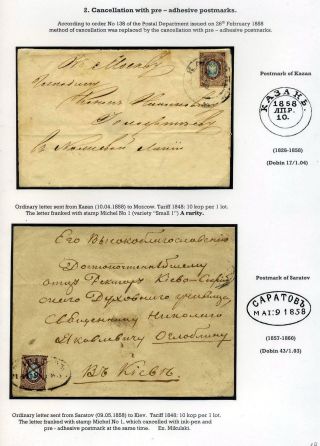 2. Cancellation with pre – adhesive postmarks.
According to order No 138 of the Postal Department issued on 26th February 1858
method of cancelation was replaced by the cancelation with pre – adhesive postmarks.
Въ Москву
Postmark of Kazan
КАЗАНЬ
1858
АПР.
10.
(1828-1858)
(Dobin 17/1.04)
Ordinary letter sent from Kazan (10.04.1858) to Moscow. Tariff 1848: 10 kop per 1 lot.
The letter franked with stamp Michel No 1 (variety "Small 1") A rarity.
Его Высокоблагословенію
Достопочтеннѣйшему
отцу Ректору Кіево-
Духовного училища,
Священнику Николаю
Яковлевичу Оглоблину
Въ Кіевъ
Postmark of Saratov
САРАТОВЪ
MAI 9 1858
(1857-1860)
(Dobin 43/1.03)
Ordinary letter sent from Saratov (09.05.1858) to Kiev. Tariff 1848: 10 kop per 1 lot.
The letter franked with stamp Michel No 1, which cancelled with ink-pen and
pre - adhesive postmark at the same time. Ex. Mikulski.